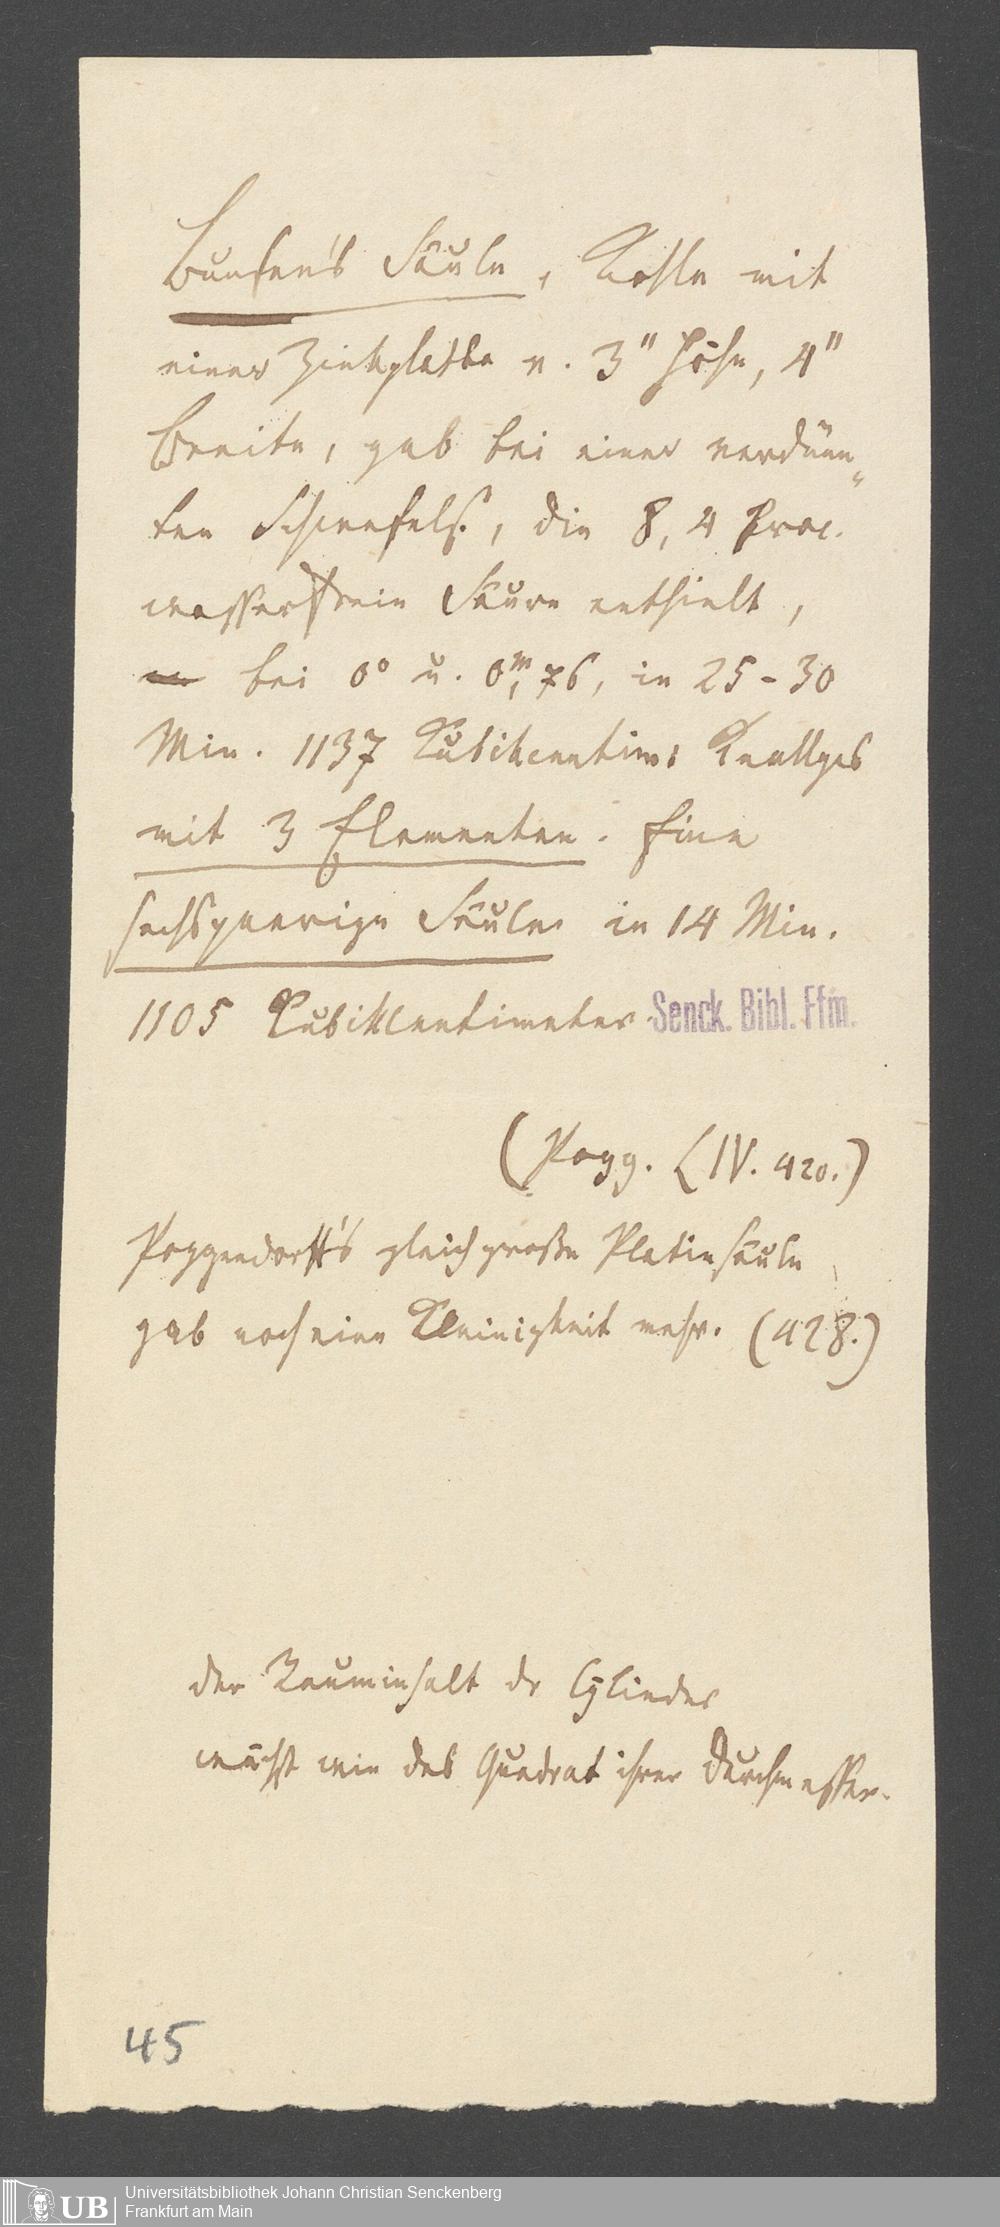 Bunsen's Säule, Kohle mit
einer Zinkplatte v. 3" Höhe, 4"
Breite, gab bei einer verdünn„
ten Schwefels., die 8,4 Proc.
wasserfreie Säure enthielt,
bei 0° u. 0,ᵐ76, in 25-30
Min. 1137 Kubikcentim: Knallgas
mit 3 Elementen. Eine
sechspaarige Säule in 14 Min.
1105 Kubikcentimeter.
Senck. Bibl. Ffm.
(Pogg. LIV. 420.)
Poggendorff's gleich große Platinsäule
gab noch eine Kleinigkeit mehr. (428.)
der Rauminhalt dr Cÿlinder
wächst wie das Quadrat ihrer Durchmesser.
45
UB
Universitätsbibliothek Johann Christian Senckenberg
Frankfurt am Main